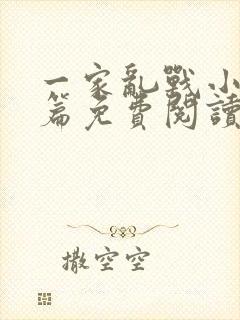 一家亂戰小
篇免費閱讀
撒空空